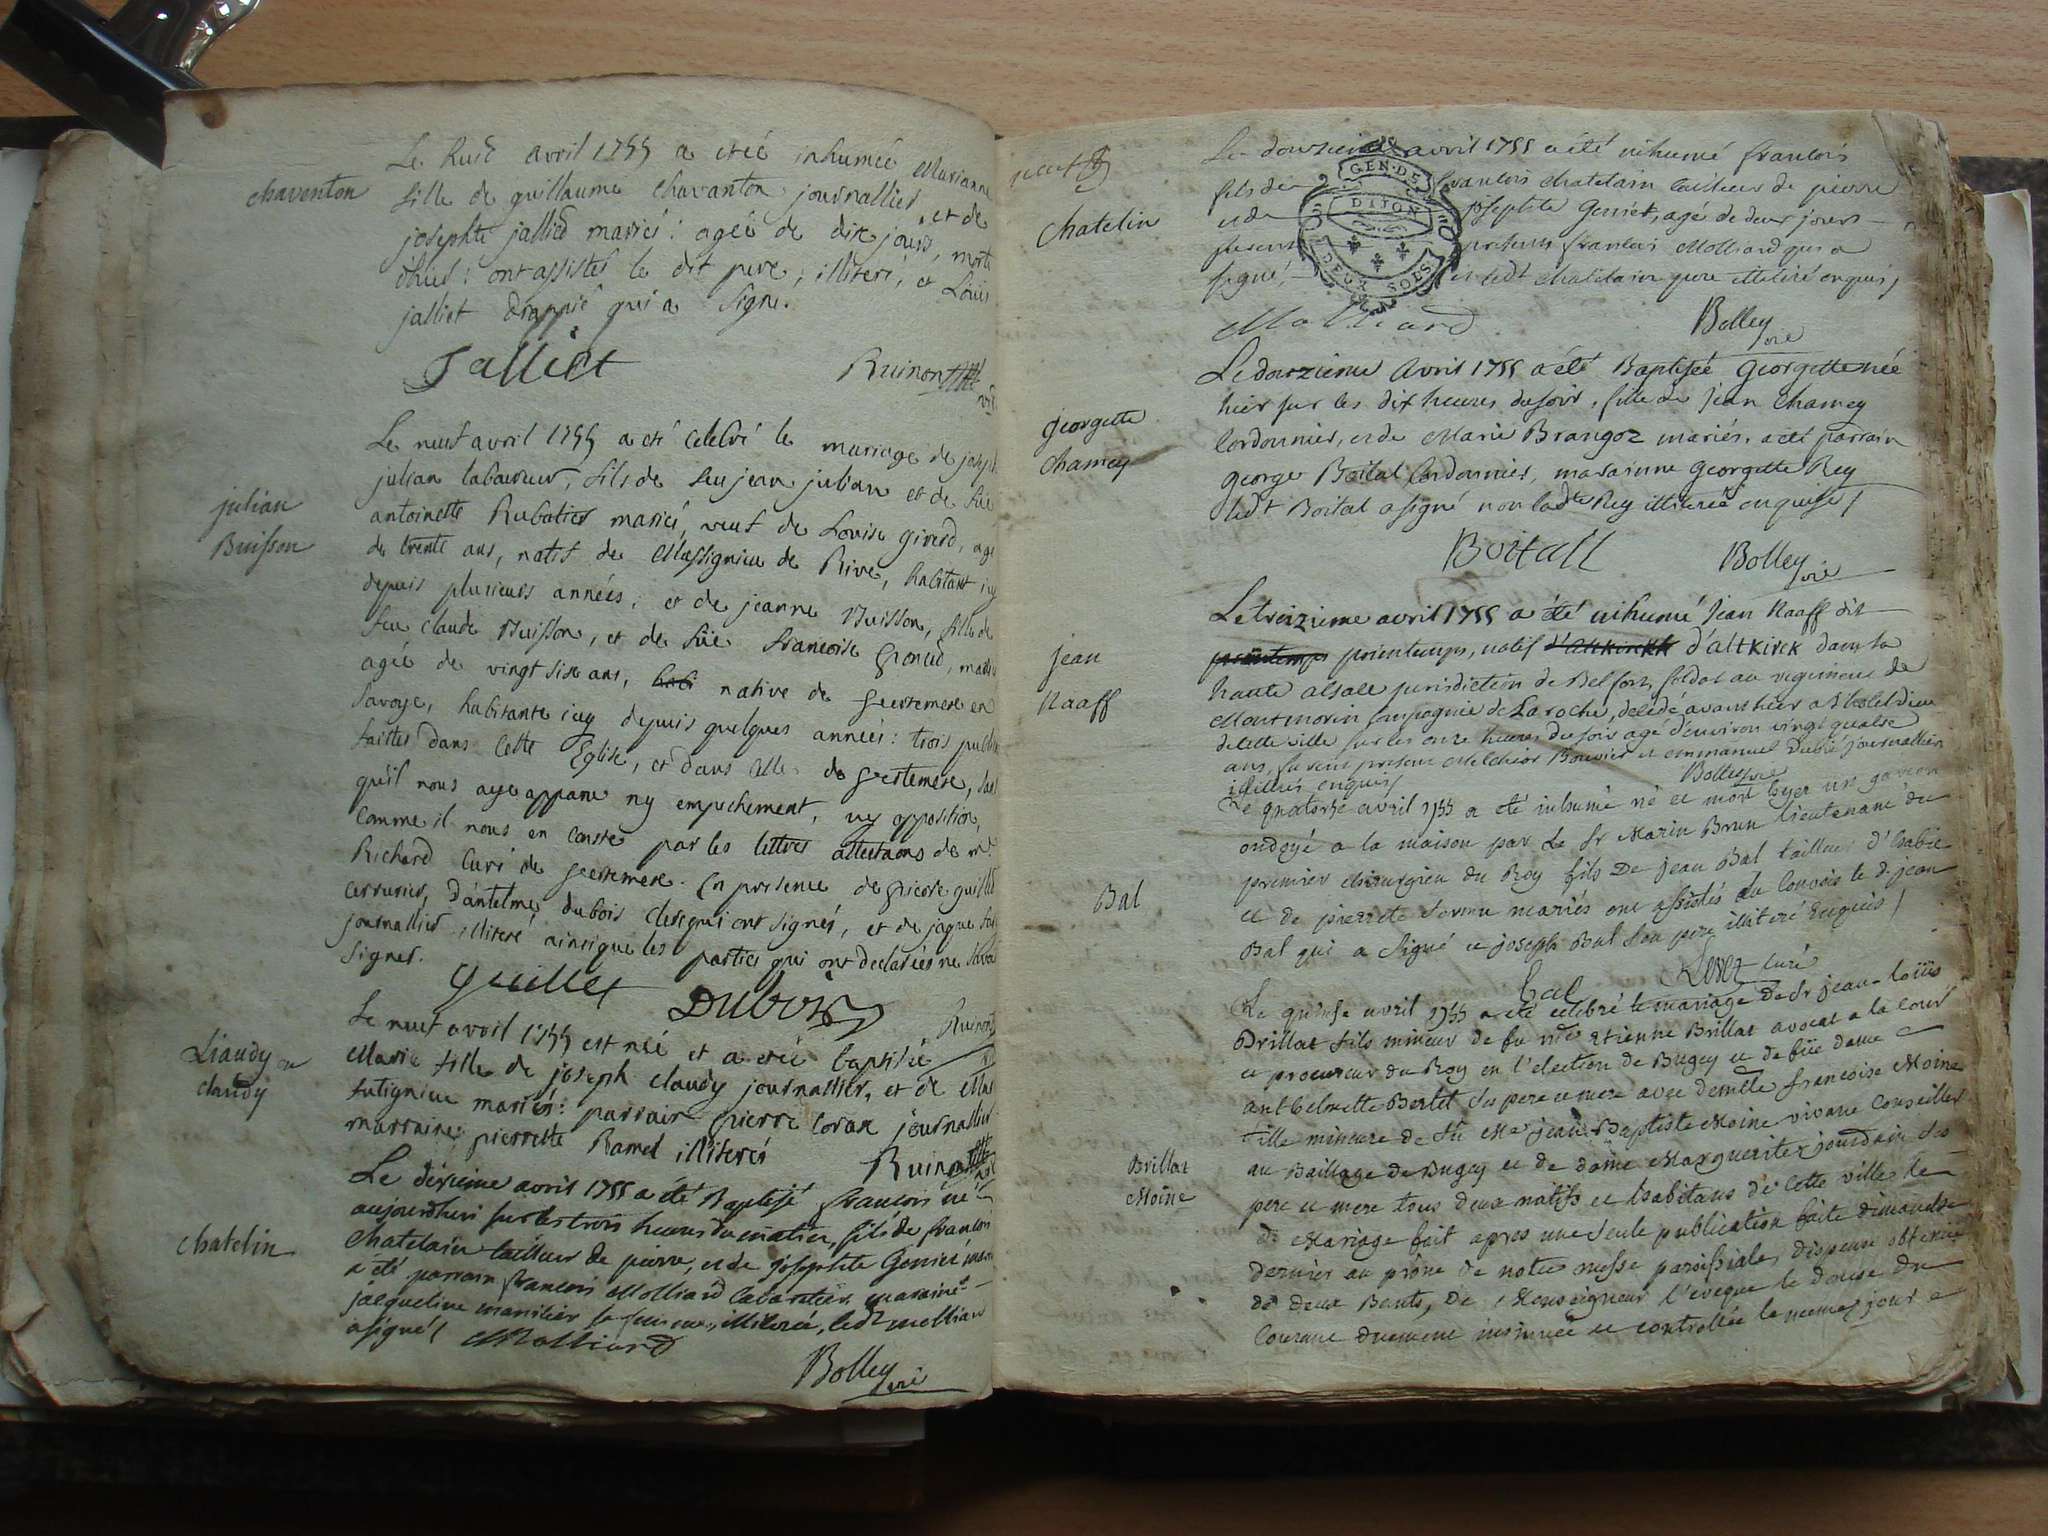 chaventon
Le huit avril 1755 a eté inhumée Marianne
fille de guillaume chavanton journallier, et de
josephte jallied mariés : agée de dix jours, morte
d'hier : ont assistes le dit pere, illiteré, et Louis
jalliet drappié qui a signe.
Jalliet Ruinon
julian
Buisson
Le neuf avril 1755 a eté celebré le mariage de joseph
julian laboureur, fils de feu jean julian et de füe
antoinette Rubatier mariés, veuf de Louise girerd, agé
de trente ans, natif de Massignieu de Rive, habitant icy
depuis plusieurs années ; et de jeanne Buisson, fille de
feu claude Buisson, et de füe francoise
agée de vingt six ans, native de en
Savoye, habitante icy depuis quelques années : trois
faittes dans cette Eglise, et dans celle de
qu'il nous aye apparu ny empechement, ny opposition,
comme il nous en conste par les lettres de mr
Richard curé de . En presence de pierre
d'antelme dubois clerc qui ont signés, et de jaque
journallier illiteré ainsi que les parties qui ont declarées ne
signer.
Guillet Dubois
Ruinon
Liaudy ou
claudy
Le neuf avril 1755 est née et a eté baptisée
Marie fille de joseph claudy journallier, et de
mariés : parrain pierre journallier
marraine pierrette Ramel illiterés
Ruinon
chatelin
Le dixieme avril 1755 a été Baptisé francois né
aujourdhuy sur les trois heures du matin, fils de francois
chatelain tailleur de pierre, et de josephte Genier
a été parrain francois Molliard maraine
jacqueline illiterée, ledt molliard
a signé /
Molliard
Bolley vre
Chatelin
Le douzieme avril 1755 a été inhumé francois
fils de francois chatelain tailleur de pierre
et de josephte Genier, agé de deux jours
presents francois Molliard qui a
signé, et ledt chatelain pere illiteré enquis /
GEN. DE
DIJON
DEUX SOLS
Molliard
Bolley vre
georgette
chamey
Le douzieme Avril 1755 a été Baptisée Georgette née
hier sur les dix heures du soir, fille de Jean Chamey
Cordonnier, et de Marie Brangoz mariés. a été parrain
george Boital Cordonnier, marainne Georgette Rey
ledt Boital a signé non ladte Rey illiterée enquise /
Boitall Bolley vre
jean
Naaff
Le treizieme avril 1755 a été inhumé Jean Naaff dit
printemps printemps, natif d'altkirck d'altkirck dans la
haute alsace jurisdiction de Belfort, soldat au regiment de
Montmorin compagnie de Laroche, decedé avant hier a l'hotel dieu
de cette ville sur les onze heures du soir agé d'environ vingt quatre
ans, furent presens Melchior Bouvier et emmanuel journallier
illitérés enquis /
Bolley vre
Bal
Le quatorse avril 1755 a eté inhumé né et mort hyer un garcon
ondoyé a la maison par Le Sr Marin Brun lieutenant du
premier chirurgien du Roy fils De jean Bal tailleur d'habit
et de pierrete mariés ont assistés au convois le d. jean
Bal qui a signé et joseph Bal son pere illiteré Enquis /
Bal curé
Brillat
Moine
Le quinse avril 1755 a eté celebré le mariage de Sr jean-loüis
Brillat fils mineur de fu me Etienne Brillat avocat a la cour
et procureur du Roy en l'election de Bugey et de füe dame
anthelmette Bertet ses pere et mere avec demlle francoise Moine
fille mineure de fü Me jean-Baptiste Moine vivant conseiller
au Baillage de Bugey et de dame Marguerite jourdain ses
pere et mere tous deux natifs et habitans de cette ville le
d. Mariage fait apres une seule publication faite dimanche
dernier au prône de notre messe paroissiale, dispense obtenüe
de deux Bants, De Monseigneur l'eveque le douse du
courant duement insinuée et controllée le meme jour